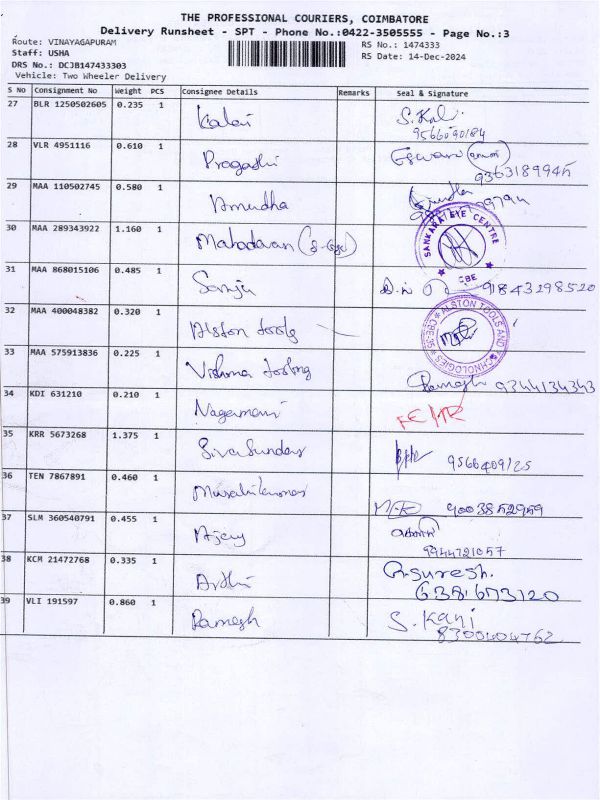 THE PROFESSIONAL COURIERS, COIMBATORE
Delivery Runsheet - SPT - Phone No.:0422-3505555 - Page No.:3
Route: VINAYAGAPURAM
Staff: USHA
DRS No.: DCJB147433303
Vehicle: Two Wheeler Delivery
RS No.: 1474333
RS Date: 14-Dec-2024
S No Consignment No Weight PCS Consignee Details Remarks Seal & Signature
27 BLR 1250502605 0.235 1 Kalai S. Kal
9566090184
28 VLR 4951116 0.610 1 Pragathi Eswari
9363189945
29 MAA 110502745 0.580 1 Amudha
30 MAA 289343922 1.160 1 Mahadevan
SANKARA EYE CENTRE
CBE
31 MAA 868015106 0.485 1 Sanju 91843298520
32 MAA 400048382 0.320 1 Alston tools
ALSTON TOOLS AND
TECHNOLOGIES
CBE-35
33 MAA 575913836 0.225 1 Vishma tooling Ramesh 9344134343
34 KDI 631210 0.210 1 Nagamani
35 KRR 5673268 1.375 1 Siva Sundar 9566409125
36 TEN 7867891 0.460 1 Muralikumar 9003852959
37 SLM 360540791 0.455 1 Ajay
9944721057
38 KCM 21472768 0.335 1 Ardhi G. Suresh.
6381673120
39 VLI 191597 0.860 1 Ramesh S. Kani
8300404762